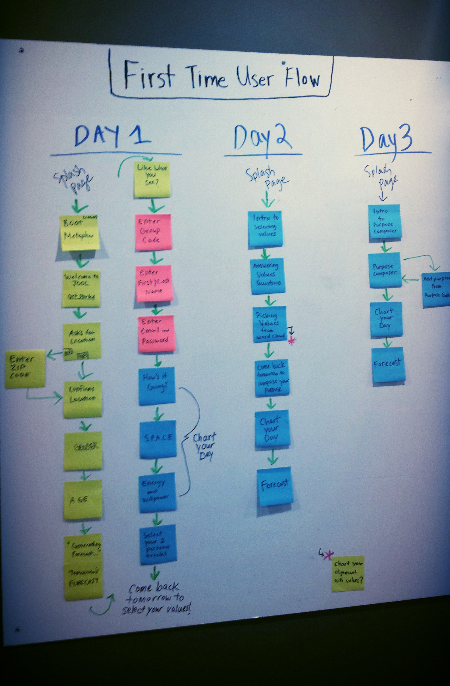 First Time User Flow
DAY 1
Splash
page
Metaphor
Welcome to
Get Started
Asks for
Location
Enter
ZIP
CODE
Confirms
Location
GENDER
AGE
"Generating
Forecast..."
FORECAST
Like What
You
See?
Enter
Group
Code
Enter
First
Name
Enter
Email and
Password
How's it
Going?
S.P.A.C.E
Energy
and
willpower
Select
your
Chart
your
Day
Come back
tomorrow to
select your values!
Day 2
Splash
page
Intro to
Selecting
values
Answering
Values
Questions
Picking
Values
from
word cloud
Come back
tomorrow to
Chart
your
Day
Forecast
Day 3
Splash
page
Intro
to
Purpose
Composer
Purpose
Composer
from
Chart
your
Day
Forecast
Chart your
alignment
with values?